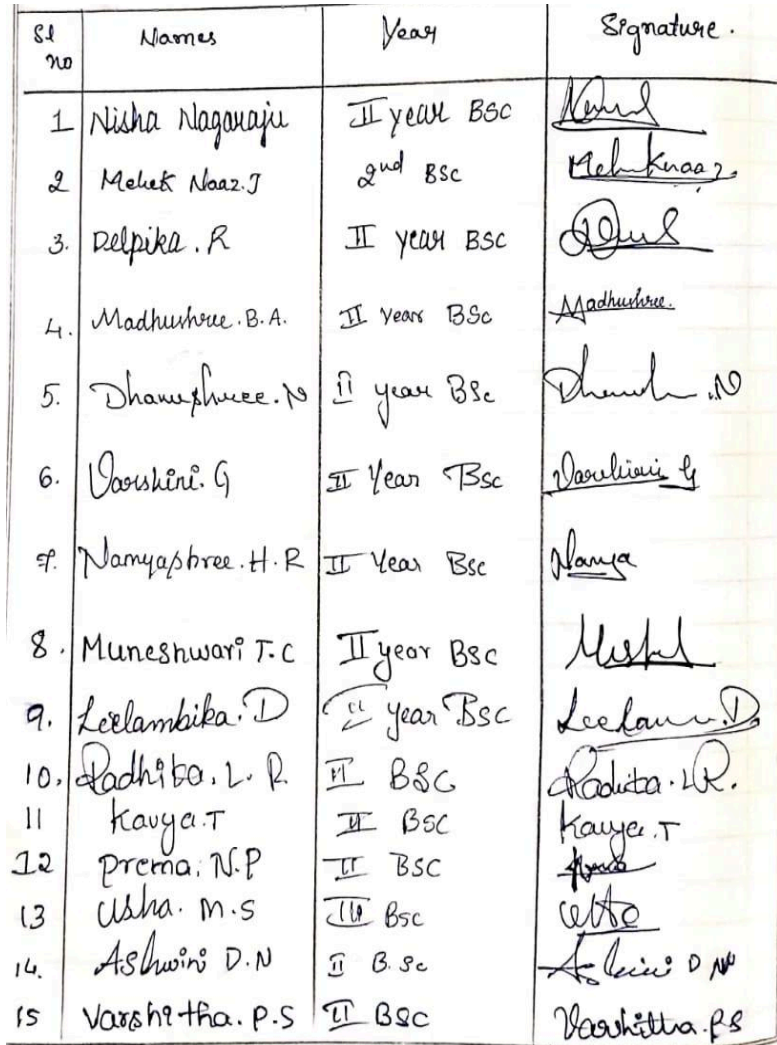 Sl no Names Year Signature.
1 Nisha Nagaraju II year BSC
2 Mehek Naaz.J 2nd BSC Meheknaaz.
3. Delpika. R II year BSC
4. Madhushree. B.A. II Year BSc Madhushree.
5. Dhanushree. N II year BSc
6. Varshini. G II Year BSc Varshini G
7. Namyashree. H. R II Year Bsc Namya
8. Muneshwari T. C II year BSC
9. Leelambika. D II year BSC
10. Radhika. L. R II BSC Radhika. L R.
11 Kavya. T II BSC Kavya. T
12 Prema. N.P II BSC
13 Usha. M.S III BSC
14. Ashwini D.N II B.Sc Ashwini D N
15 Varshitha. P.S II BSC Varshitha. P S